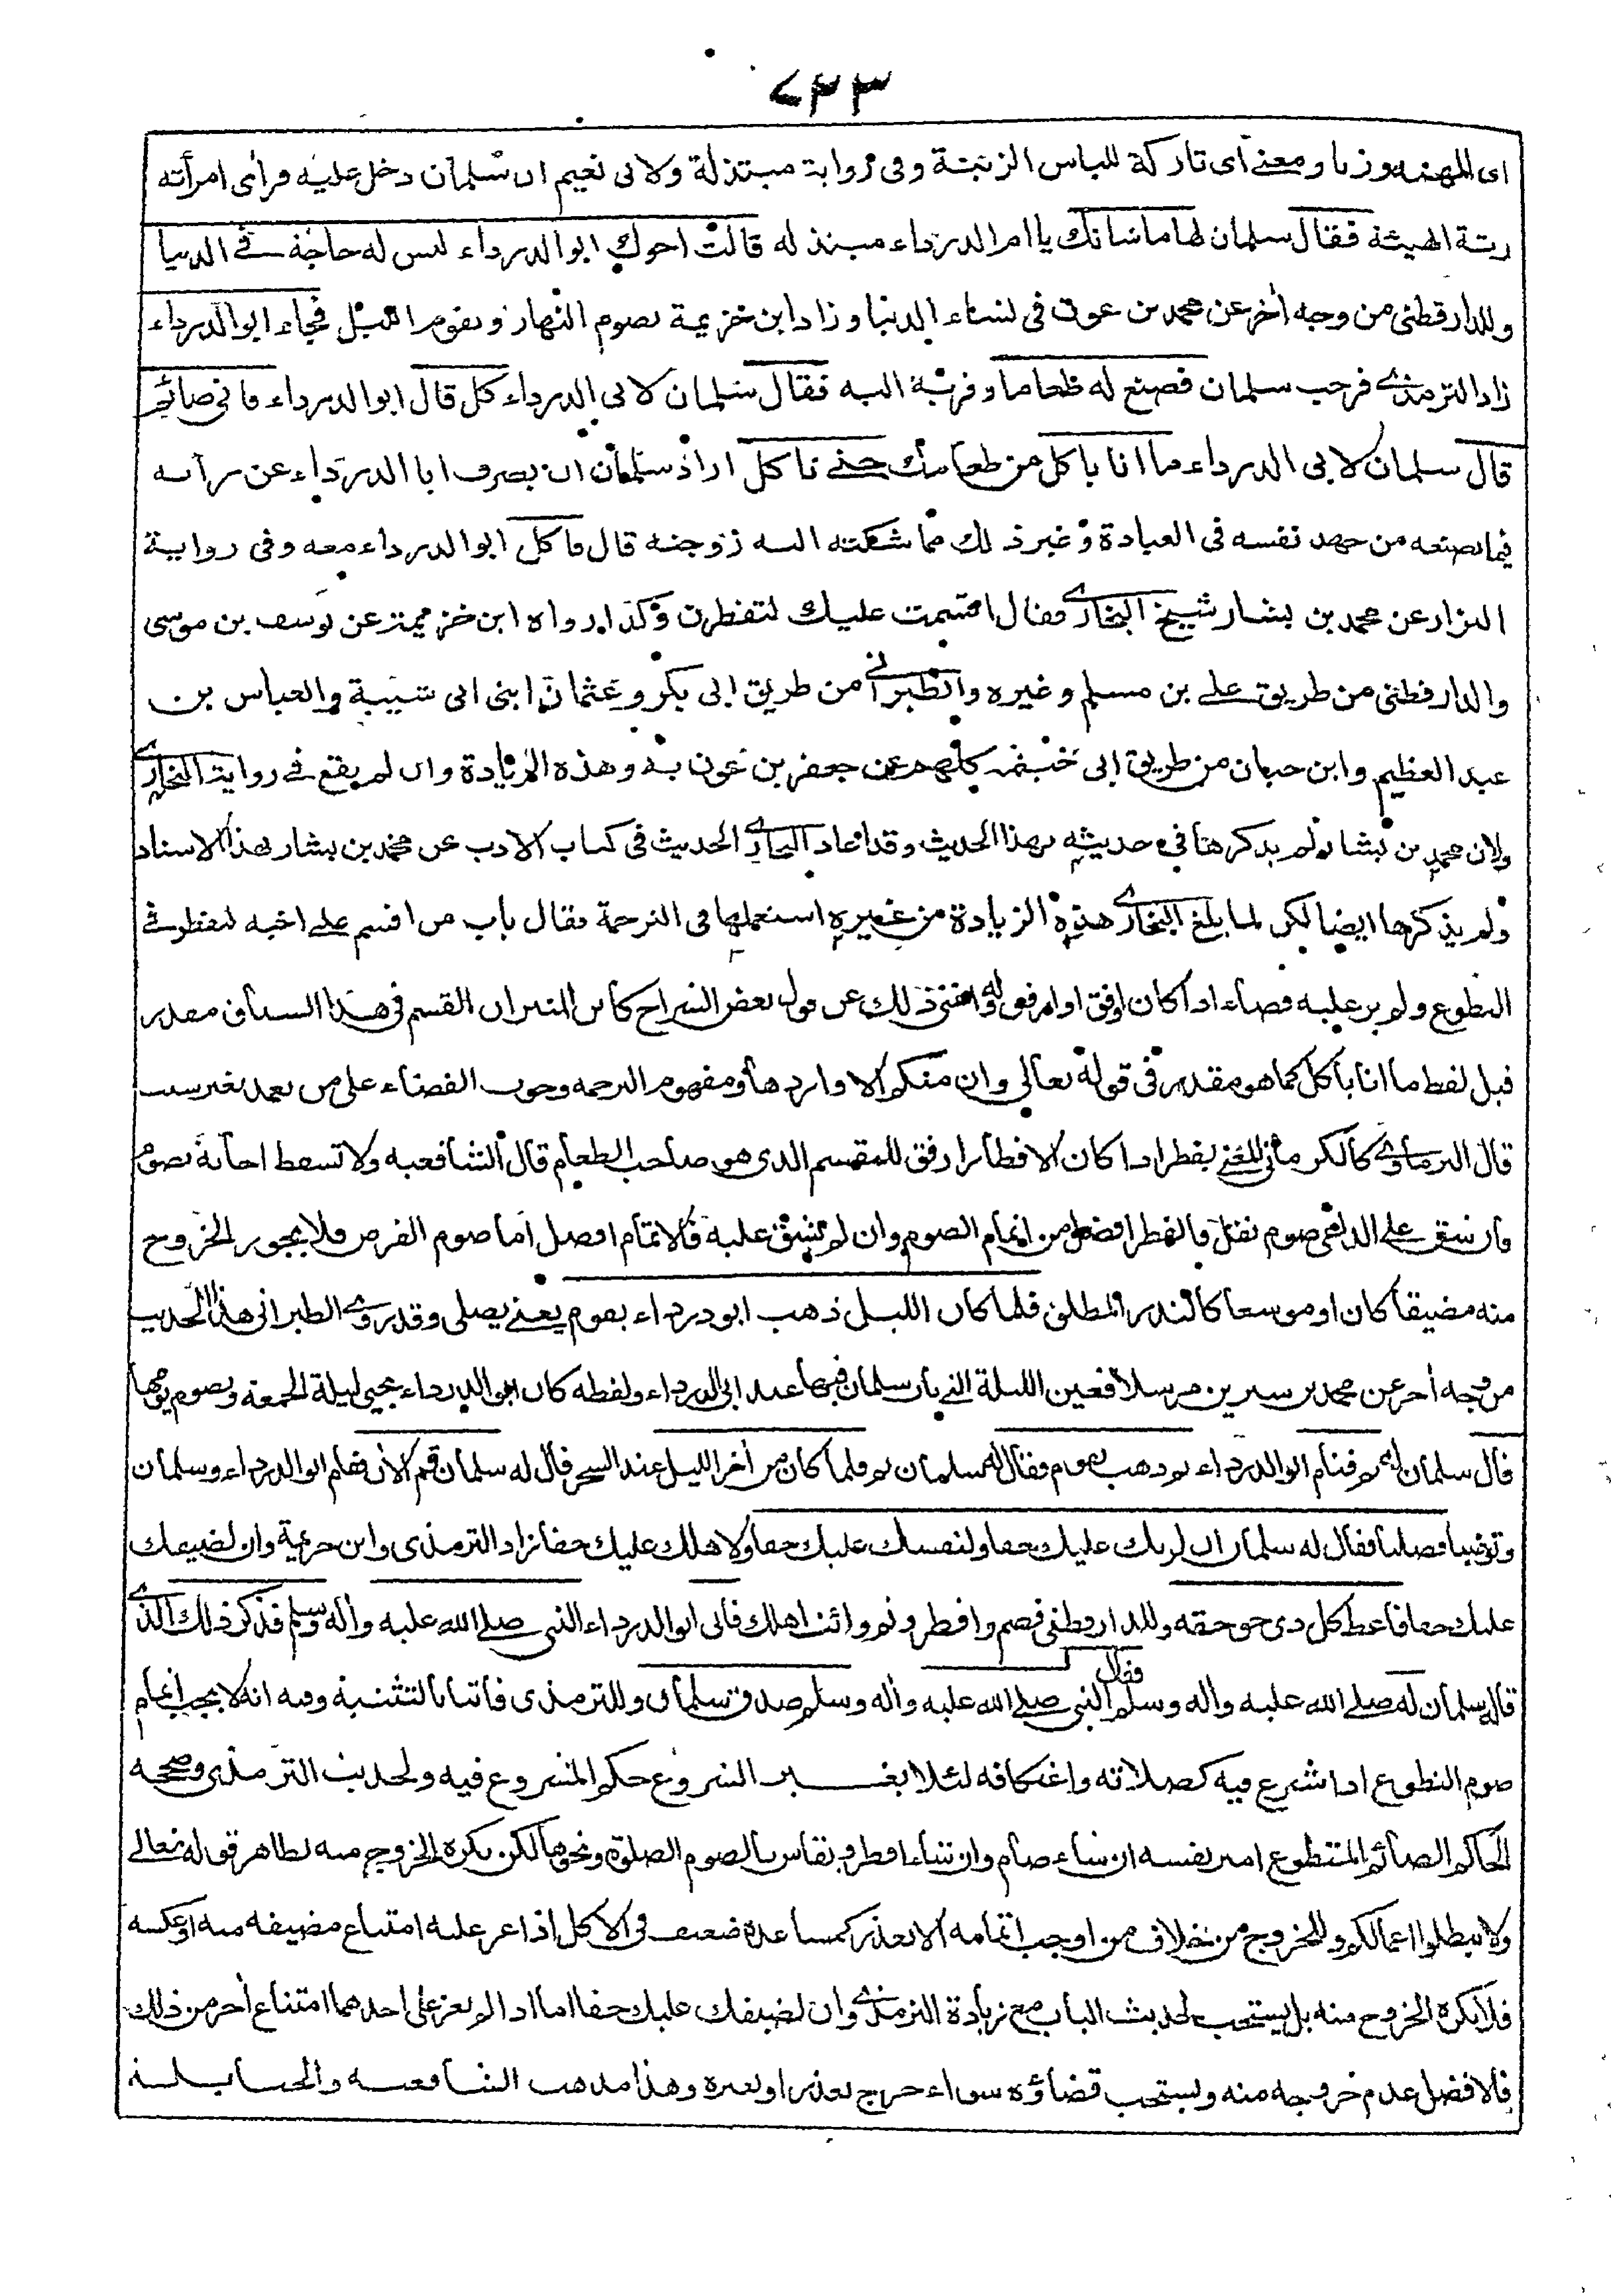 ٢٣٣
اى المهنه وزنا ومعنى اى تاركة للباس الزينة وفى رواية مبتذلة ولابى نعيم ان سلمان دخل عليه فرأى امرأته
رثة الهيئة فقال سلمان لها ما شانك يا ام الدرداء مبتذله قالت اخوك ابو الدرداء ليس له حاجة فى الدنيا
وللدارقطنى من وجه أخر عن محمد بن عون فى نساء الدنيا وزاد ابن خزيمة يصوم النهار ويقوم الليل فجاء ابو الدرداء
زاد الترمذى فرحب سلمان فصنع له طعاما وقربة اليه فقال سلمان لابى الدرداء كل قال ابو الدرداء فانى صائم
قال سلمان لابى الدرداء ما انا باكل من طعامك حتى تاكل اراد سلمان ان يصرف ابا الدرداء عن رأيه
فيما يصنعه من جهد نفسه فى العبادة وغير ذلك مما شكته اليه زوجته قال فاكل ابو الدرداء معه وفى رواية
البزار عن محمد بن بشار شيخ البخارى فقال اقسمت عليك لتفطرن وكذا رواه ابن خزيمة عن يوسف بن موسى
والدارقطنى من طريق على بن مسلم وغيره والطبرانى من طريق ابى بكر وعثمان ابنى ابى شيبة والعباس بن
عبد العظيم وابن حبان من طريق ابى خثيمة كلهم عن جعفر بن عون به وهذه الزيادة وان لم يقع فى رواية البخارى
ولان محمد بن بشار لم يذكرها فى حديثه بهذا الحديث وقد اعاد البخارى الحديث فى كتاب الادب عن محمد بن بشار بهذا الاسناد
ولم يذكرها ايضا لكن لما بلغ البخارى هذه الزيادة من غيره استعملها فى الترجمة فقال باب من اقسم على اخيه ليفطر فى
التطوع ولم ير عليه قضاء اذا كان اوفق او ارفق له واغنى ذلك عن قول بعض الشراح كابن المنير ان القسم فى هذا السياق مقدر
قبل لفظ ما انا باكل كما هو مقدر فى قوله تعالى وان منكم الا واردها ومفهوم الترجمه وجوب القضاء على من تعمد بغير سبب
قال البرماوى كالكرمانى للغى يفطر اذا كان الافطار ارفق للمقسم الذى هو صاحب الطعام قال الشافعيه ولا تسقط اجابة بصوم
فان شق على الداعى صوم نفل فالفطر افضل من اتمام الصوم وان لم يشق عليه فالاتمام افضل اما صوم الفرض فلا يجوز الخروج
منه مضيقا كان او موسعا كالنذر المطلق فلما كان الليل ذهب ابو درداء يقوم يعنى يصلى وقد روى الطبرانى هذا الحديث
من وجه أخر عن محمد بن سيرين مرسلا فعين الليلة التى بات سلمان فيها عند ابى الدرداء ولفظه كان ابو الدرداء يحيى ليلة الجمعة ويصوم يومها
قال سلمان له نم فنام ابو الدرداء ثم ذهب يقوم فقال له سلمان نم فلما كان من أخر الليل عند السحر قال له سلمان قم الأن فقام ابو الدرداء وسلمان
وتوضيا فصليا فقال له سلمان ان لربك عليك حقا ولنفسك عليك حقا ولاهلك عليك حقا زاد الترمذى وابن خزيمة وان لضيفك
عليك حقا فاعط كل ذى حق حقه وللدارقطنى فصم وافطر ونم وائت اهلك فاتى ابو الدرداء النبى صلى الله عليه وأله وسلم فذكر ذلك الذى
قاله سلمان له صلى الله عليه وأله وسلم فقال النبى صلى الله عليه وأله وسلم صدق سلمان وللترمذى فاتيا بالتثنية وفيه انه لا يجب اتمام
صوم التطوع اذا شرع فيه كصلاته واعتكافه لئلا يغير الشروع حكم المشروع فيه ولحديث الترمذى وصححه
الحاكم الصائم المتطوع امير نفسه ان شاء صام وان شاء افطر ويقاس بالصوم الصلوة ونحوها لكن يكره الخروج منه لظاهر قوله تعالى
ولا تبطلوا اعمالكم وللخروج من خلاف من اوجب اتمامه الا بعذر كمساعدة ضعيف فى الاكل اذا عز عليه امتناع مضيفه منه او عكسه
فلا يكره الخروج منه بل يستحب لحديث الباب مع زيادة الترمذى وان لضيفك عليك حقا اما اذا لم يعز على احدهما امتناع أخر من ذلك
فالافضل عدم خروجه منه ويستحب قضاؤه سواء خرج بعذر او بغيره وهذا مذهب الشافعيه والحنابلة